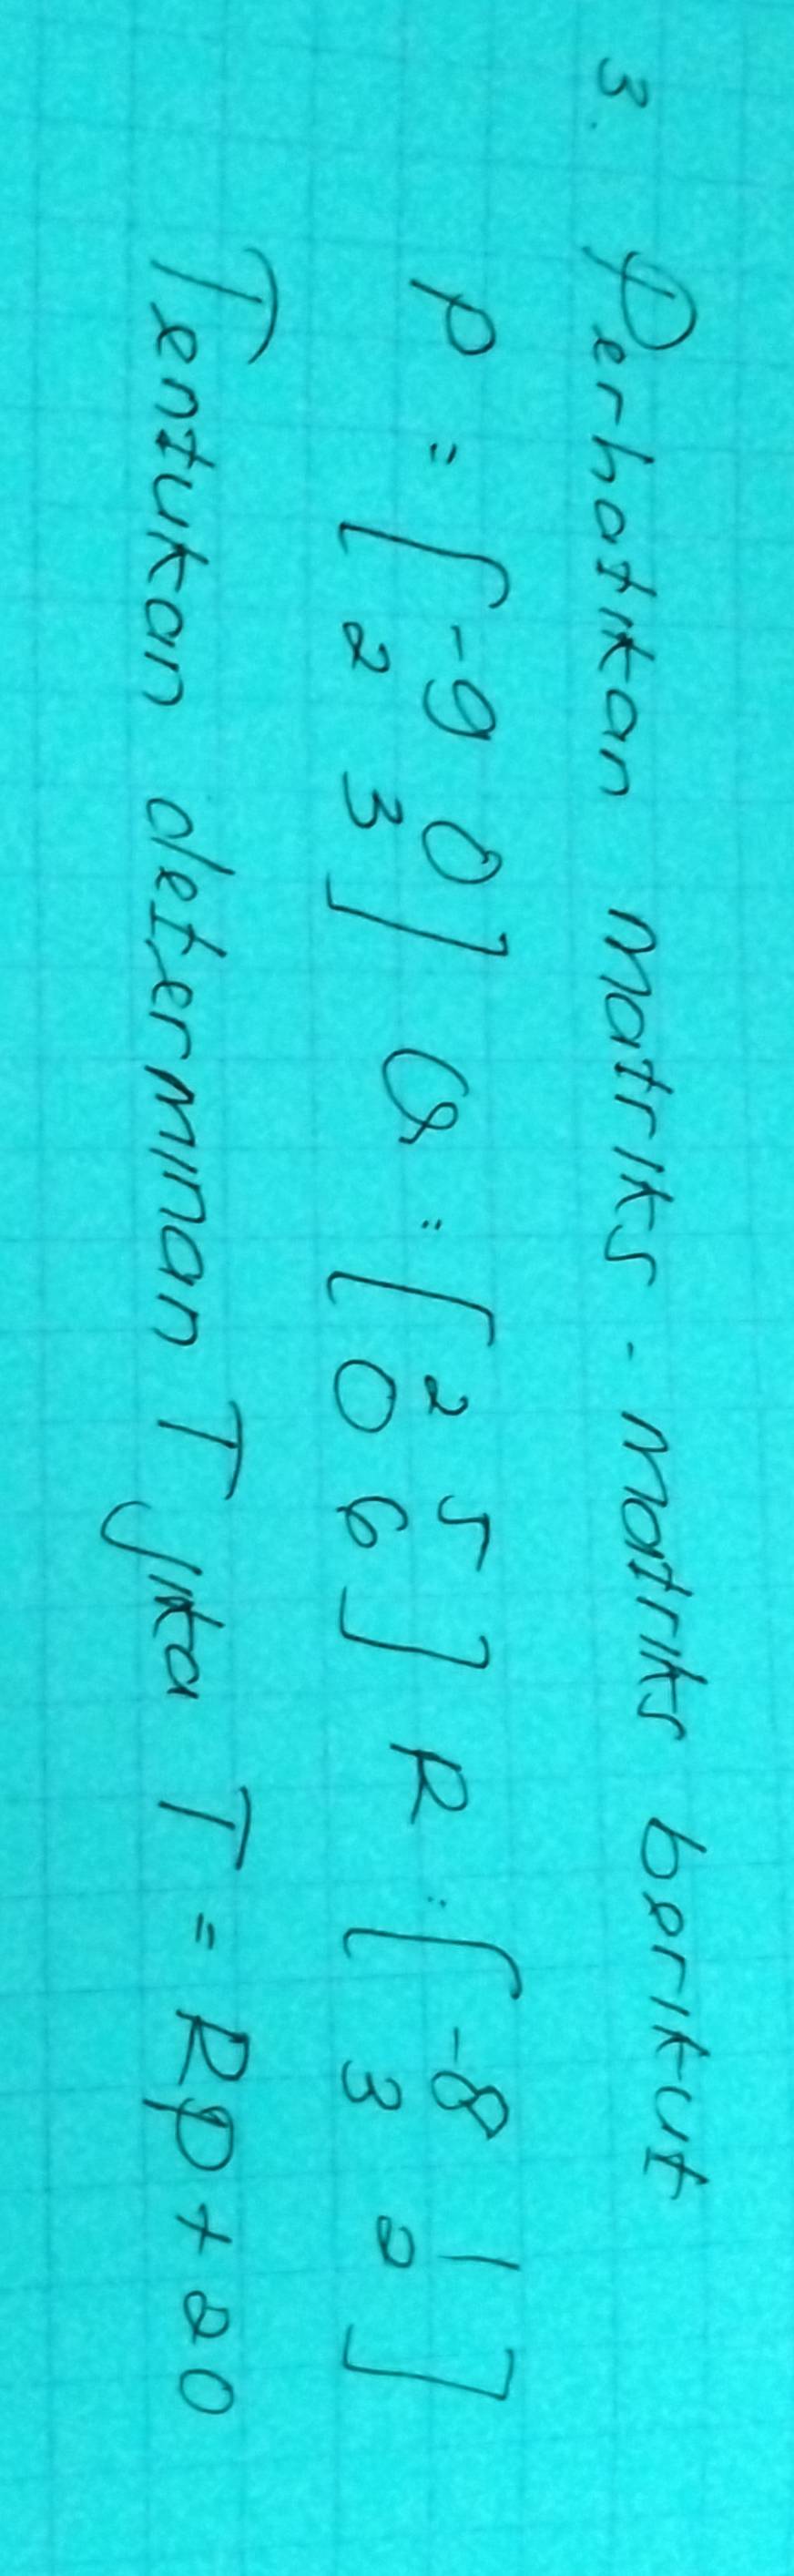 3. Perhatikan matriks - matriks berikut
P = [-9 0] Q = [2 5] R = [-8 1]
2 3 0 6 3 2
Tentukan determinan T jika T = RP + 20